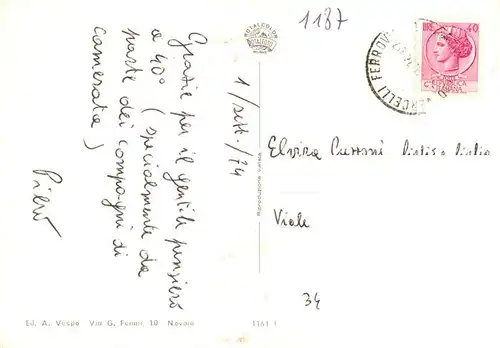 1187
ROTALCOLOR
LIRE 40
VERCELLI FERROVIA
1/sett./74
Grazie per il gentile pensiero
a 40° (specialmente da
parte dei compagni di
camerata)
Piero
Elvira
Viale
34
Riproduzione vietata
Ed. A. Vespa Via G. Ferrari, 10 Novara
1161 I